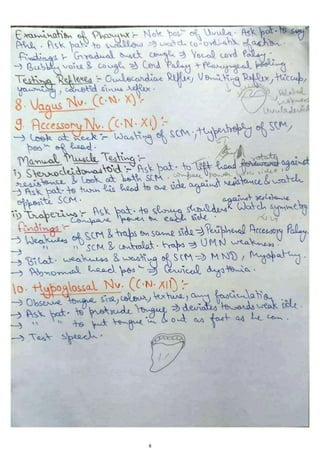 Examination of Pharynx :- Note pos" of Uvula. Ask pat. to say
Ahh. Ask pat. to swallow → watch co-ordinat" of action.
Findings :- Gradual onset cough → Vocal cord Palsy.
→ Bubbly voice & cough → Cord Palsy + Pharyngeal pooling
Testing Reflexes :- Oculocardiac Reflex, Vomiting Reflex, Hiccup,
yawning, carotid sinus reflex.
8. Vagus Nv. (C.N. X) :-
9. Accessory Nv. (C.N. XI) :-
→ Look at neck :- Wasting of SCM, Hypertrophy of SCM,
pos" of head.
Manual Muscle Testing :-
i) Sternocleidomastoid :- Ask pat. to lift head against
resistance & look at both SCM. compare power
→ Ask pat. to turn his head to one side against resistance & watch
opposite SCM.
ii) Trapezius :- Ask pat. to shrug shoulders against resistance Watch symmetry
compare power on each side.
Findings :-
→ Weakness of SCM & traps on same side → Peripheral Accessory Palsy.
→ " " SCM & contralat. traps → UMN weakness.
→ Bilat. weakness & wasting of SCM → MND, Myopathy.
→ Abnormal head pos" → Cervical dystonia.
10. Hypoglossal Nv. (C.N. XII) :-
→ Observe tongue size, colour, texture, any fasciculation
→ Ask pat. to protrude tongue → deviates towards weak side.
→ " " to put tongue in & out as fast as he can.
→ Test speech.
6